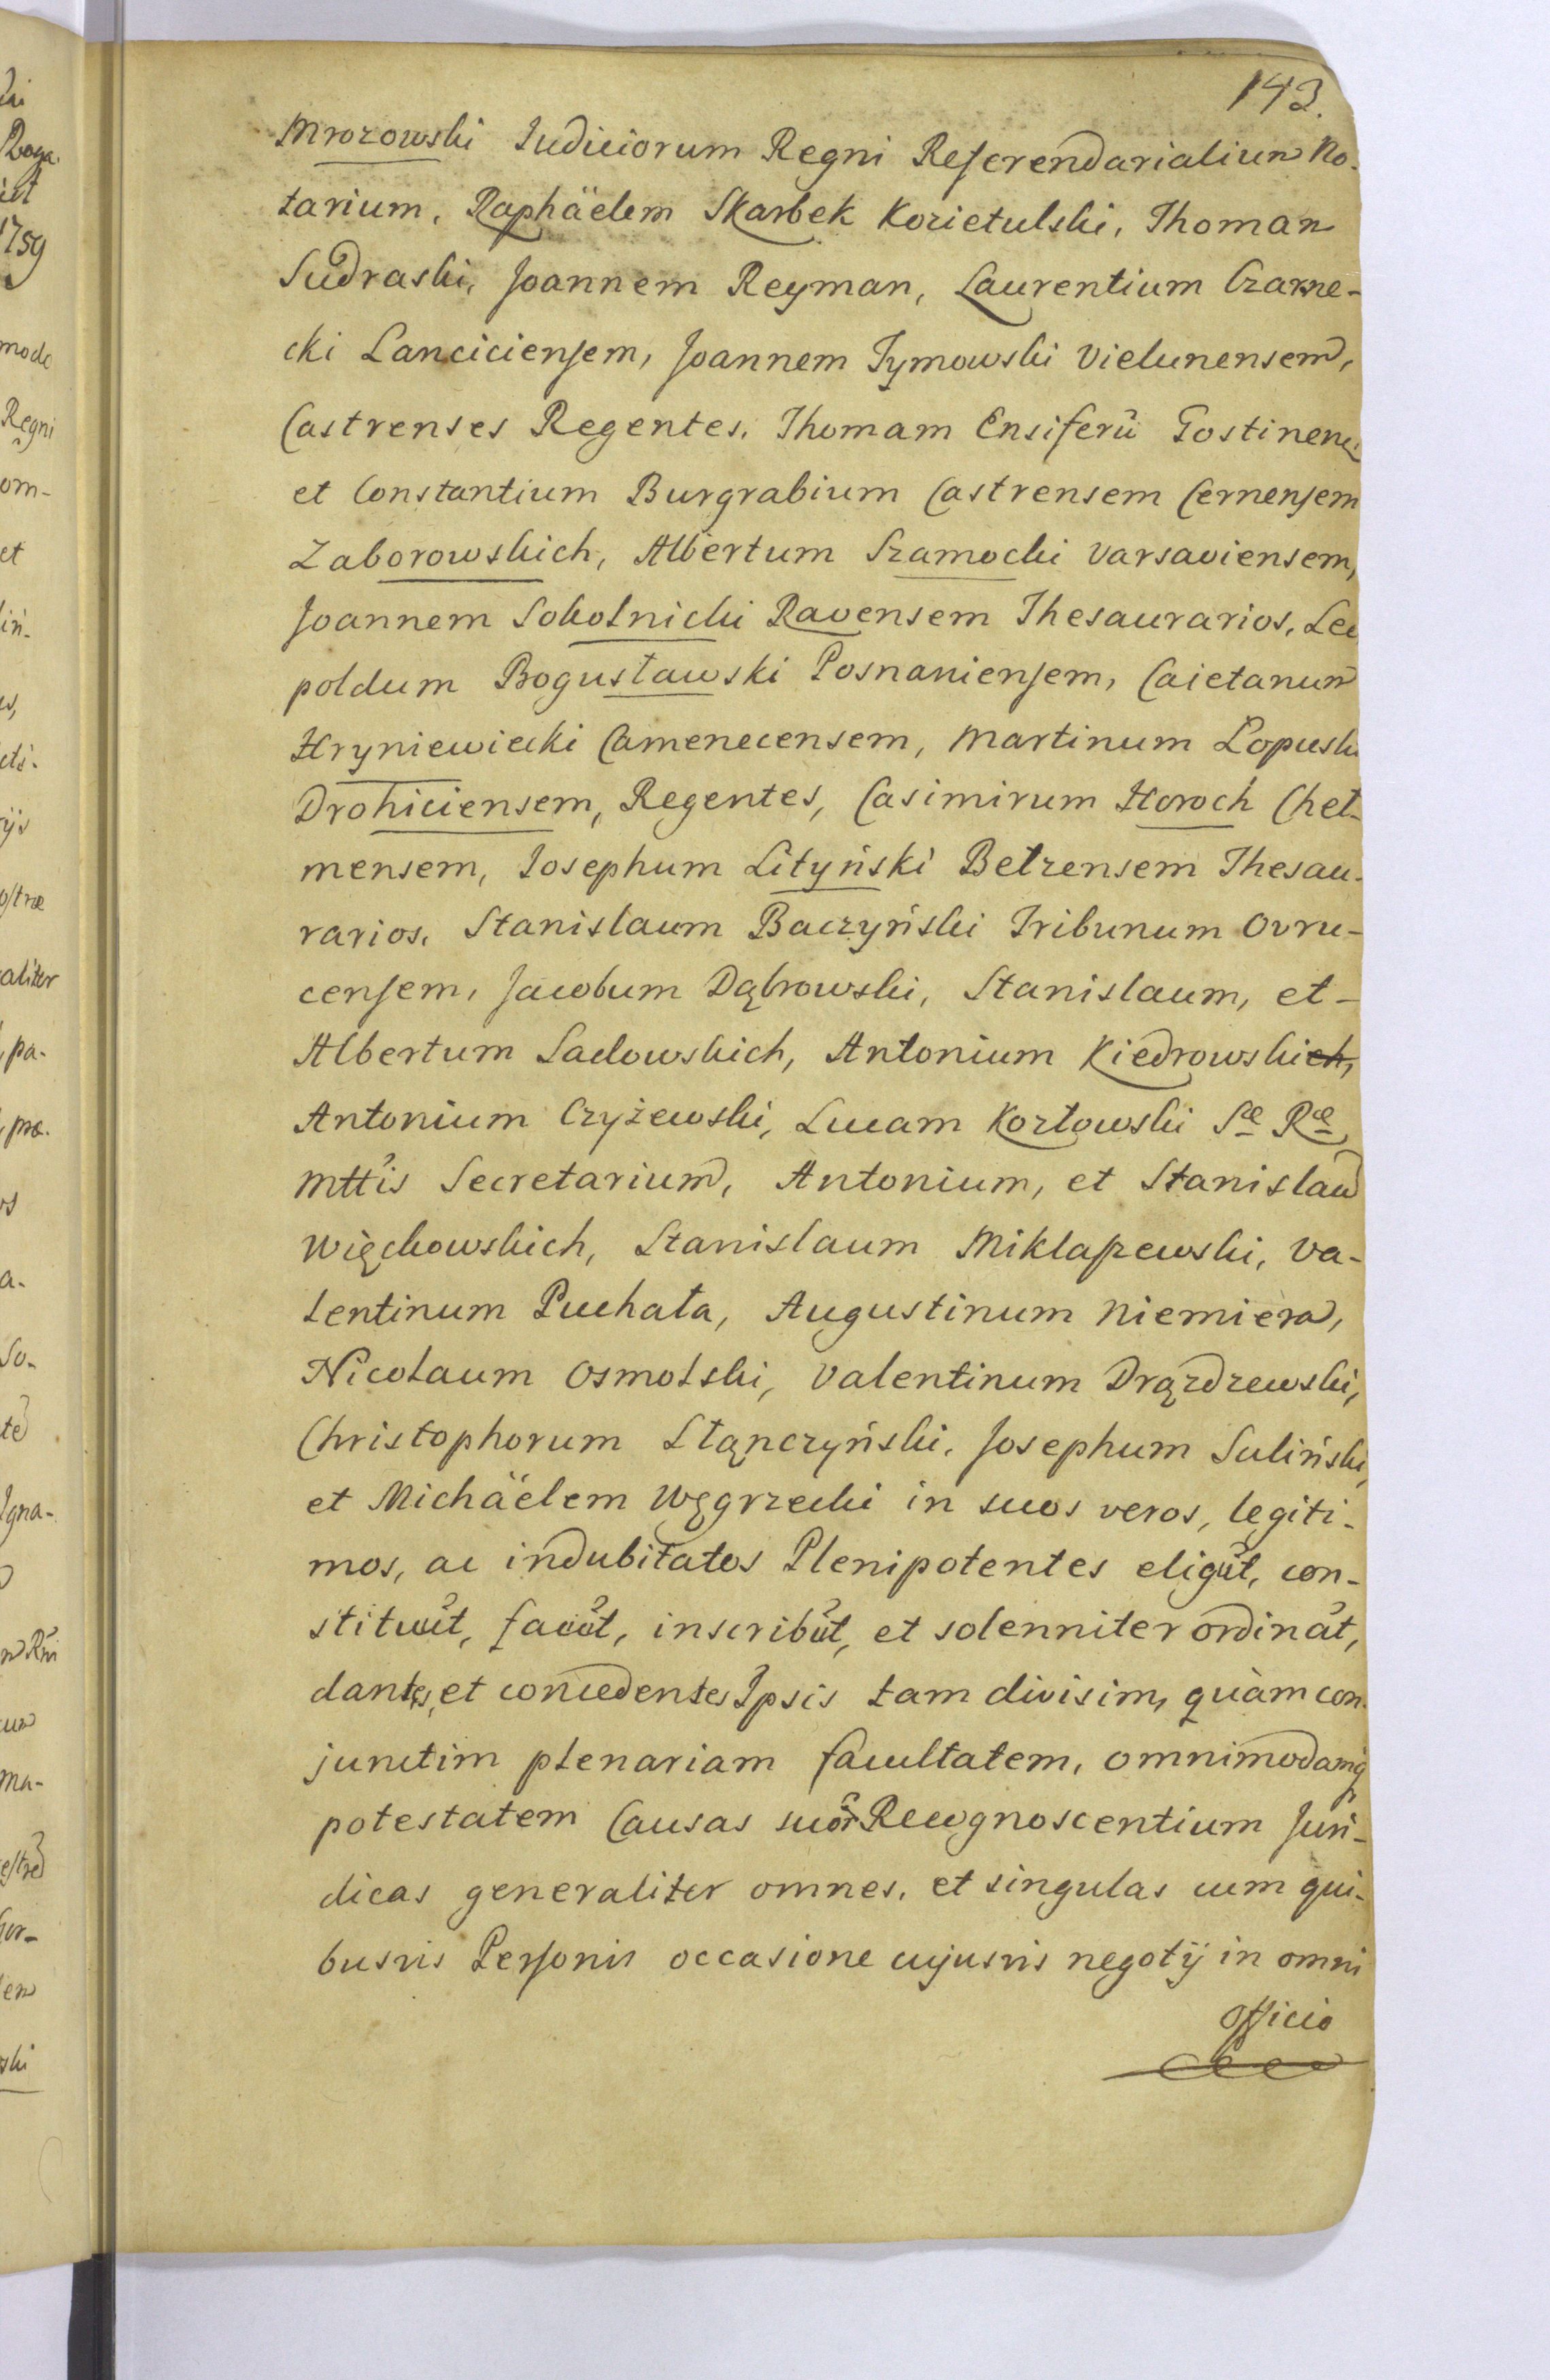 143.
Mrozowski Iudiciorum Regni Referendarialium No-
tarium, Raphäelem Skarbek Kozietulski, Thomam
Sudraski, Joannem Reyman, Laurentium Czarne-
cki Lanciciensem, Joannem Tymowski Vielunensem,
Castrenses Regentes, Thomam Ensiferū Gostinen̄
et Constantium Burgrabium Castrensem Cernensem
Zaborowskich, Albertum Szamocki Varsaviensem,
Joannem Sokolnicki Ravensem Thesaurarios, Leo
poldum Bogusławski Posnaniensem, Caietanum
Hryniewiecki Camenecensem, Martinum Łopuski
Drohiciensem, Regentes, Casimirum Horoch Cheł-
mensem, Iosephum Lityński Bełzensem Thesau-
rarios, Stanislaum Baczyński Tribunum Ovru-
censem, Jacobum Dąbrowski, Stanislaum, et
Albertum Sadowskich, Antonium Kiedrowskich,
Antonium Czyżewski, Lucam Kozłowski Sæ Ræ
Mttis Secretarium, Antonium, et Stanislaū
Więckowskich, Stanislaum Miklaszewski, Va-
lentinum Puchała, Augustinum Niemiera,
Nicolaum Osmolski, Valentinum Drązdzewski,
Christophorum Stączyński, Josephum Suliński,
et Michäelem Węgrzecki in suos veros, legiti-
mos, ac indubitatos Plenipotentes eligūt, con-
stituūt, faciūt, inscribūt, et solenniter ordināt,
dantes, et concedentes Ipsis tam divisim, quàm con-
junctim plenariam facultatem, omnimodamq̃
potestatem Causas suor̃ Recognoscentium Juri-
dicas generaliter omnes, et singulas cum qui-
busvis Personis occasione cujusvis negotij in omni
officio